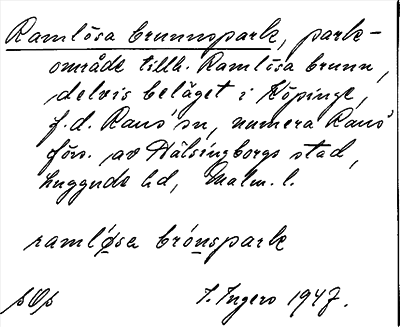 Ramlösa brunnspark, park-
område tillh. Ramlösa brunn,
delvis beläget i Köpinge,
f.d. Raus sn, numera Raus
förs. av Hälsingborgs stad,
Luggude hd, Malm. l.
ramlø̀sa brónspark
1947.